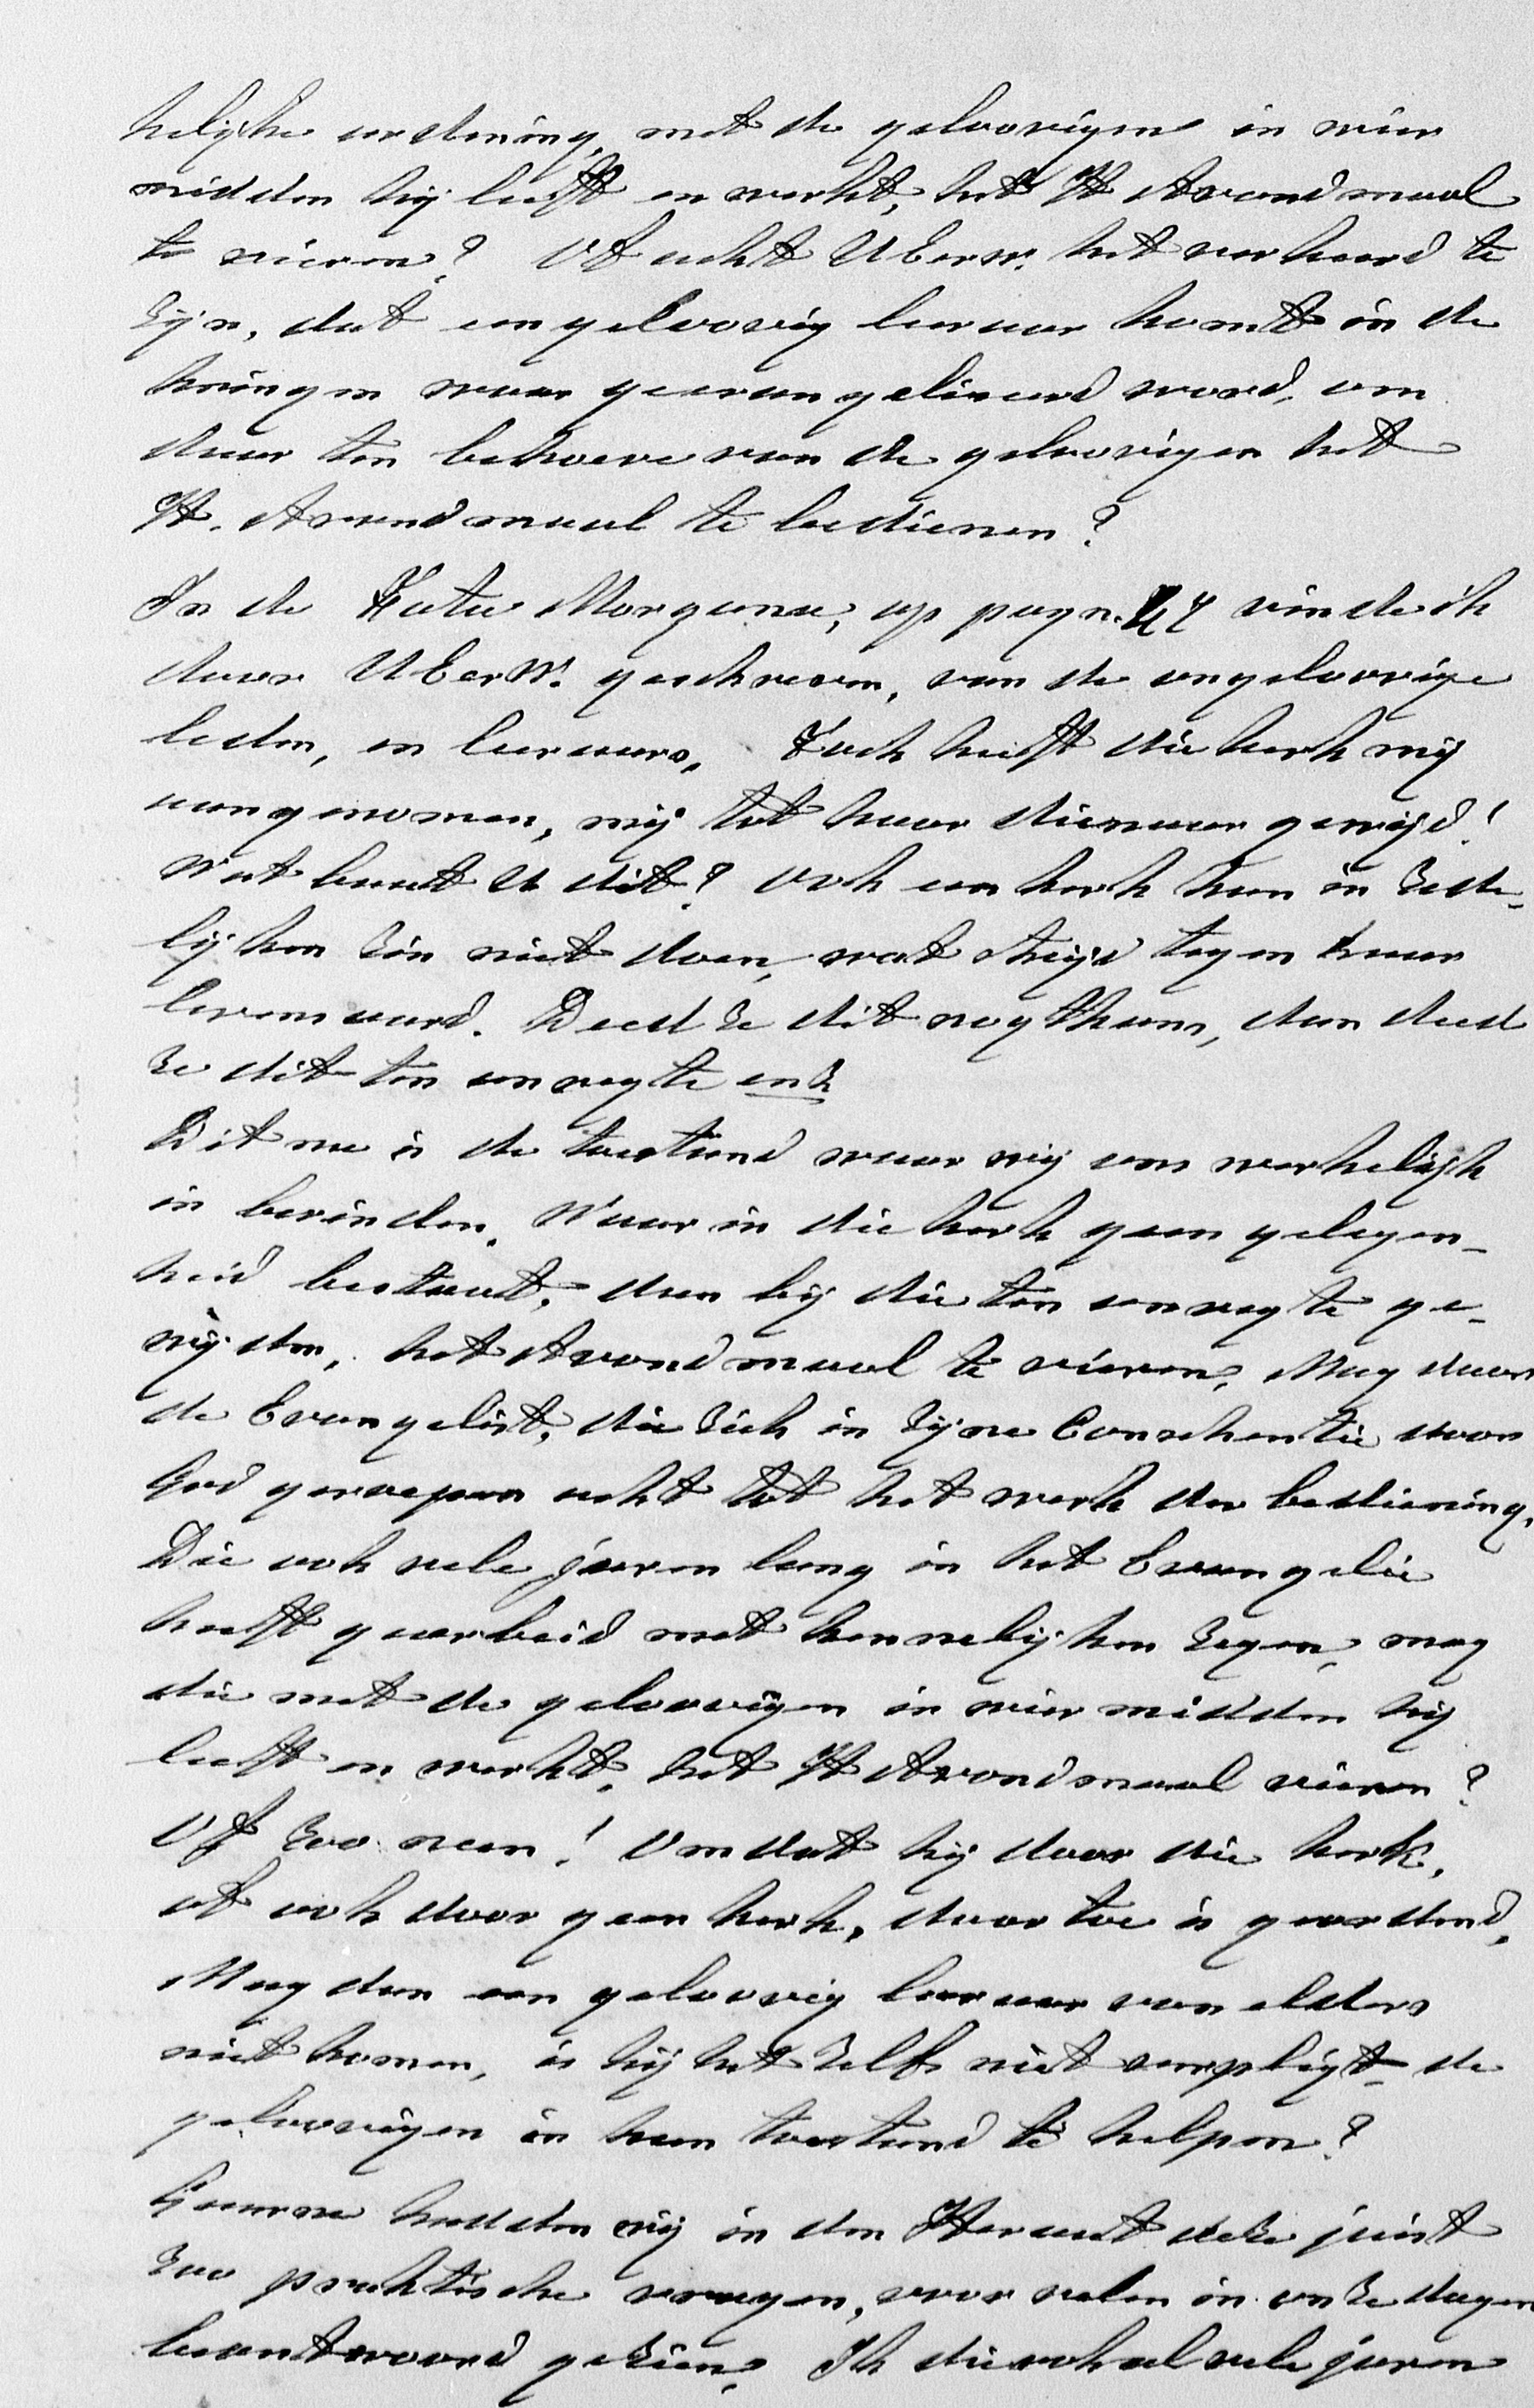 kelijke ordening, met de geloovigen in wier
midden hij leeft en werkt, het H Avondmaal
te vieren? Of acht UEerw. het verkeerd te
zijn, dat een geloovig leeraar komt in de
kringen waar geevangeliseerd word, om
daar ten behoeve van de geloovigen het
H. Avondmaal te bedienen?
In de Fata Morgana, op pagn. vinde ik
door UEerW. geschreven, van de ongeloovige
leden, en leeraars, Toch heeft die kerk mij
aangenomen, mij tot haar dienaar gewijd!
Wat baat U dit? Ook een kerk kan in zede-
lijken zin niet doen, wat strijd tegen haar
levensaard. Deed ze dit nogthans, dan deed
ze dit ten onregte enz
Dit nu is de toestand waar wij ons werkelijk
in bevinden. Waar in die kerk geen gelegen-
heid bestaat, dan bij die ten onregte ge-
wijden, het Avondmaal te vieren, Mag daar
de Evangelist, die zich in zijne Conschentie door
God geroepen acht tot het werk der bediening,
Die ook vele jaren lang in het Evangelie
heeft gearbeid met kennelijken zegen, mag
die met de geloovigen in wier midden hij
leeft en werkt, het H Avondmaal vieren?
Of zoo neen! Omdat hij door die kerk,
of ook door geen kerk, daartoe is geordend,
Mag dan een geloovig leeraar van elders
niet komen, is hij het zelfs niet verpligt de
geloovigen in hun toestand te helpen?
Gaarne hadden wij in den Heraut deze juist
zoo praktische vragen, voor velen in onze dagen
beantwoord gezien, Ik die ook al vele jaren